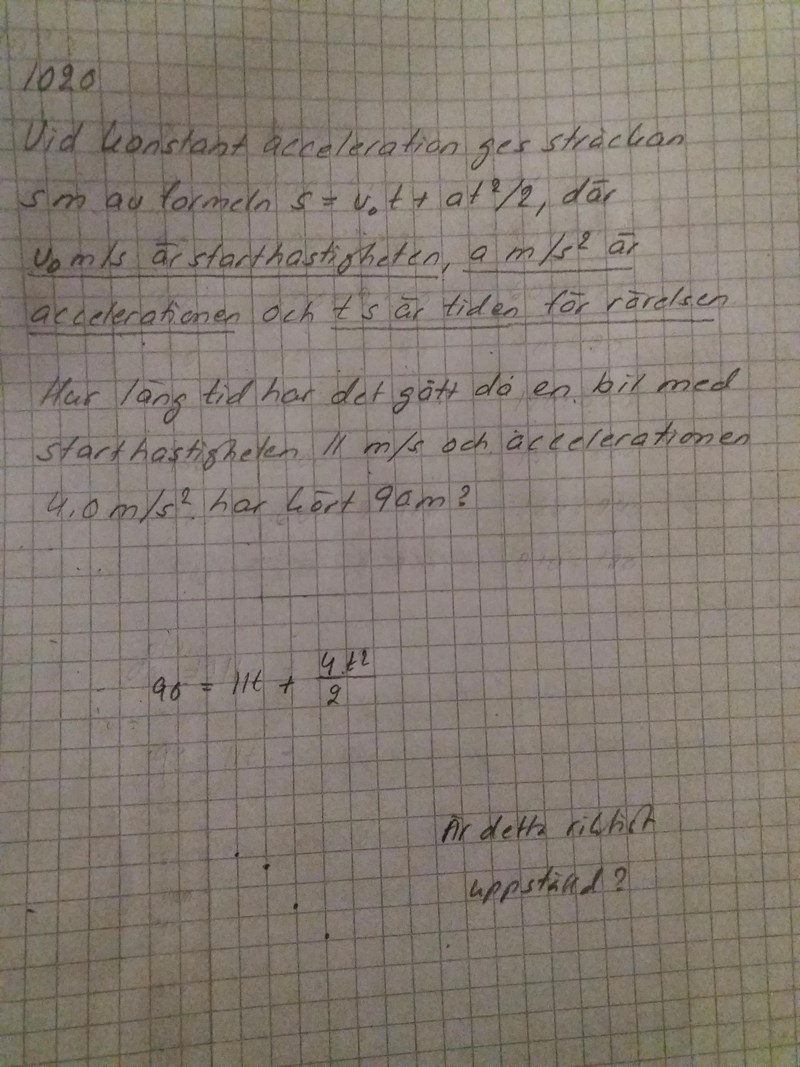 1020
Vid konstant acceleration ges sträckan
s m av formeln s = v₀t + at²/2, där
v₀ m/s är starthastigheten, a m/s² är
accelerationen och t s är tiden för rörelsen
Hur lång tid har det gått då en bil med
starthastigheten 11 m/s och accelerationen
4,0 m/s² har kört 90m?
90 = 11t + 4t²/2
Är detta riktigt
uppställd?